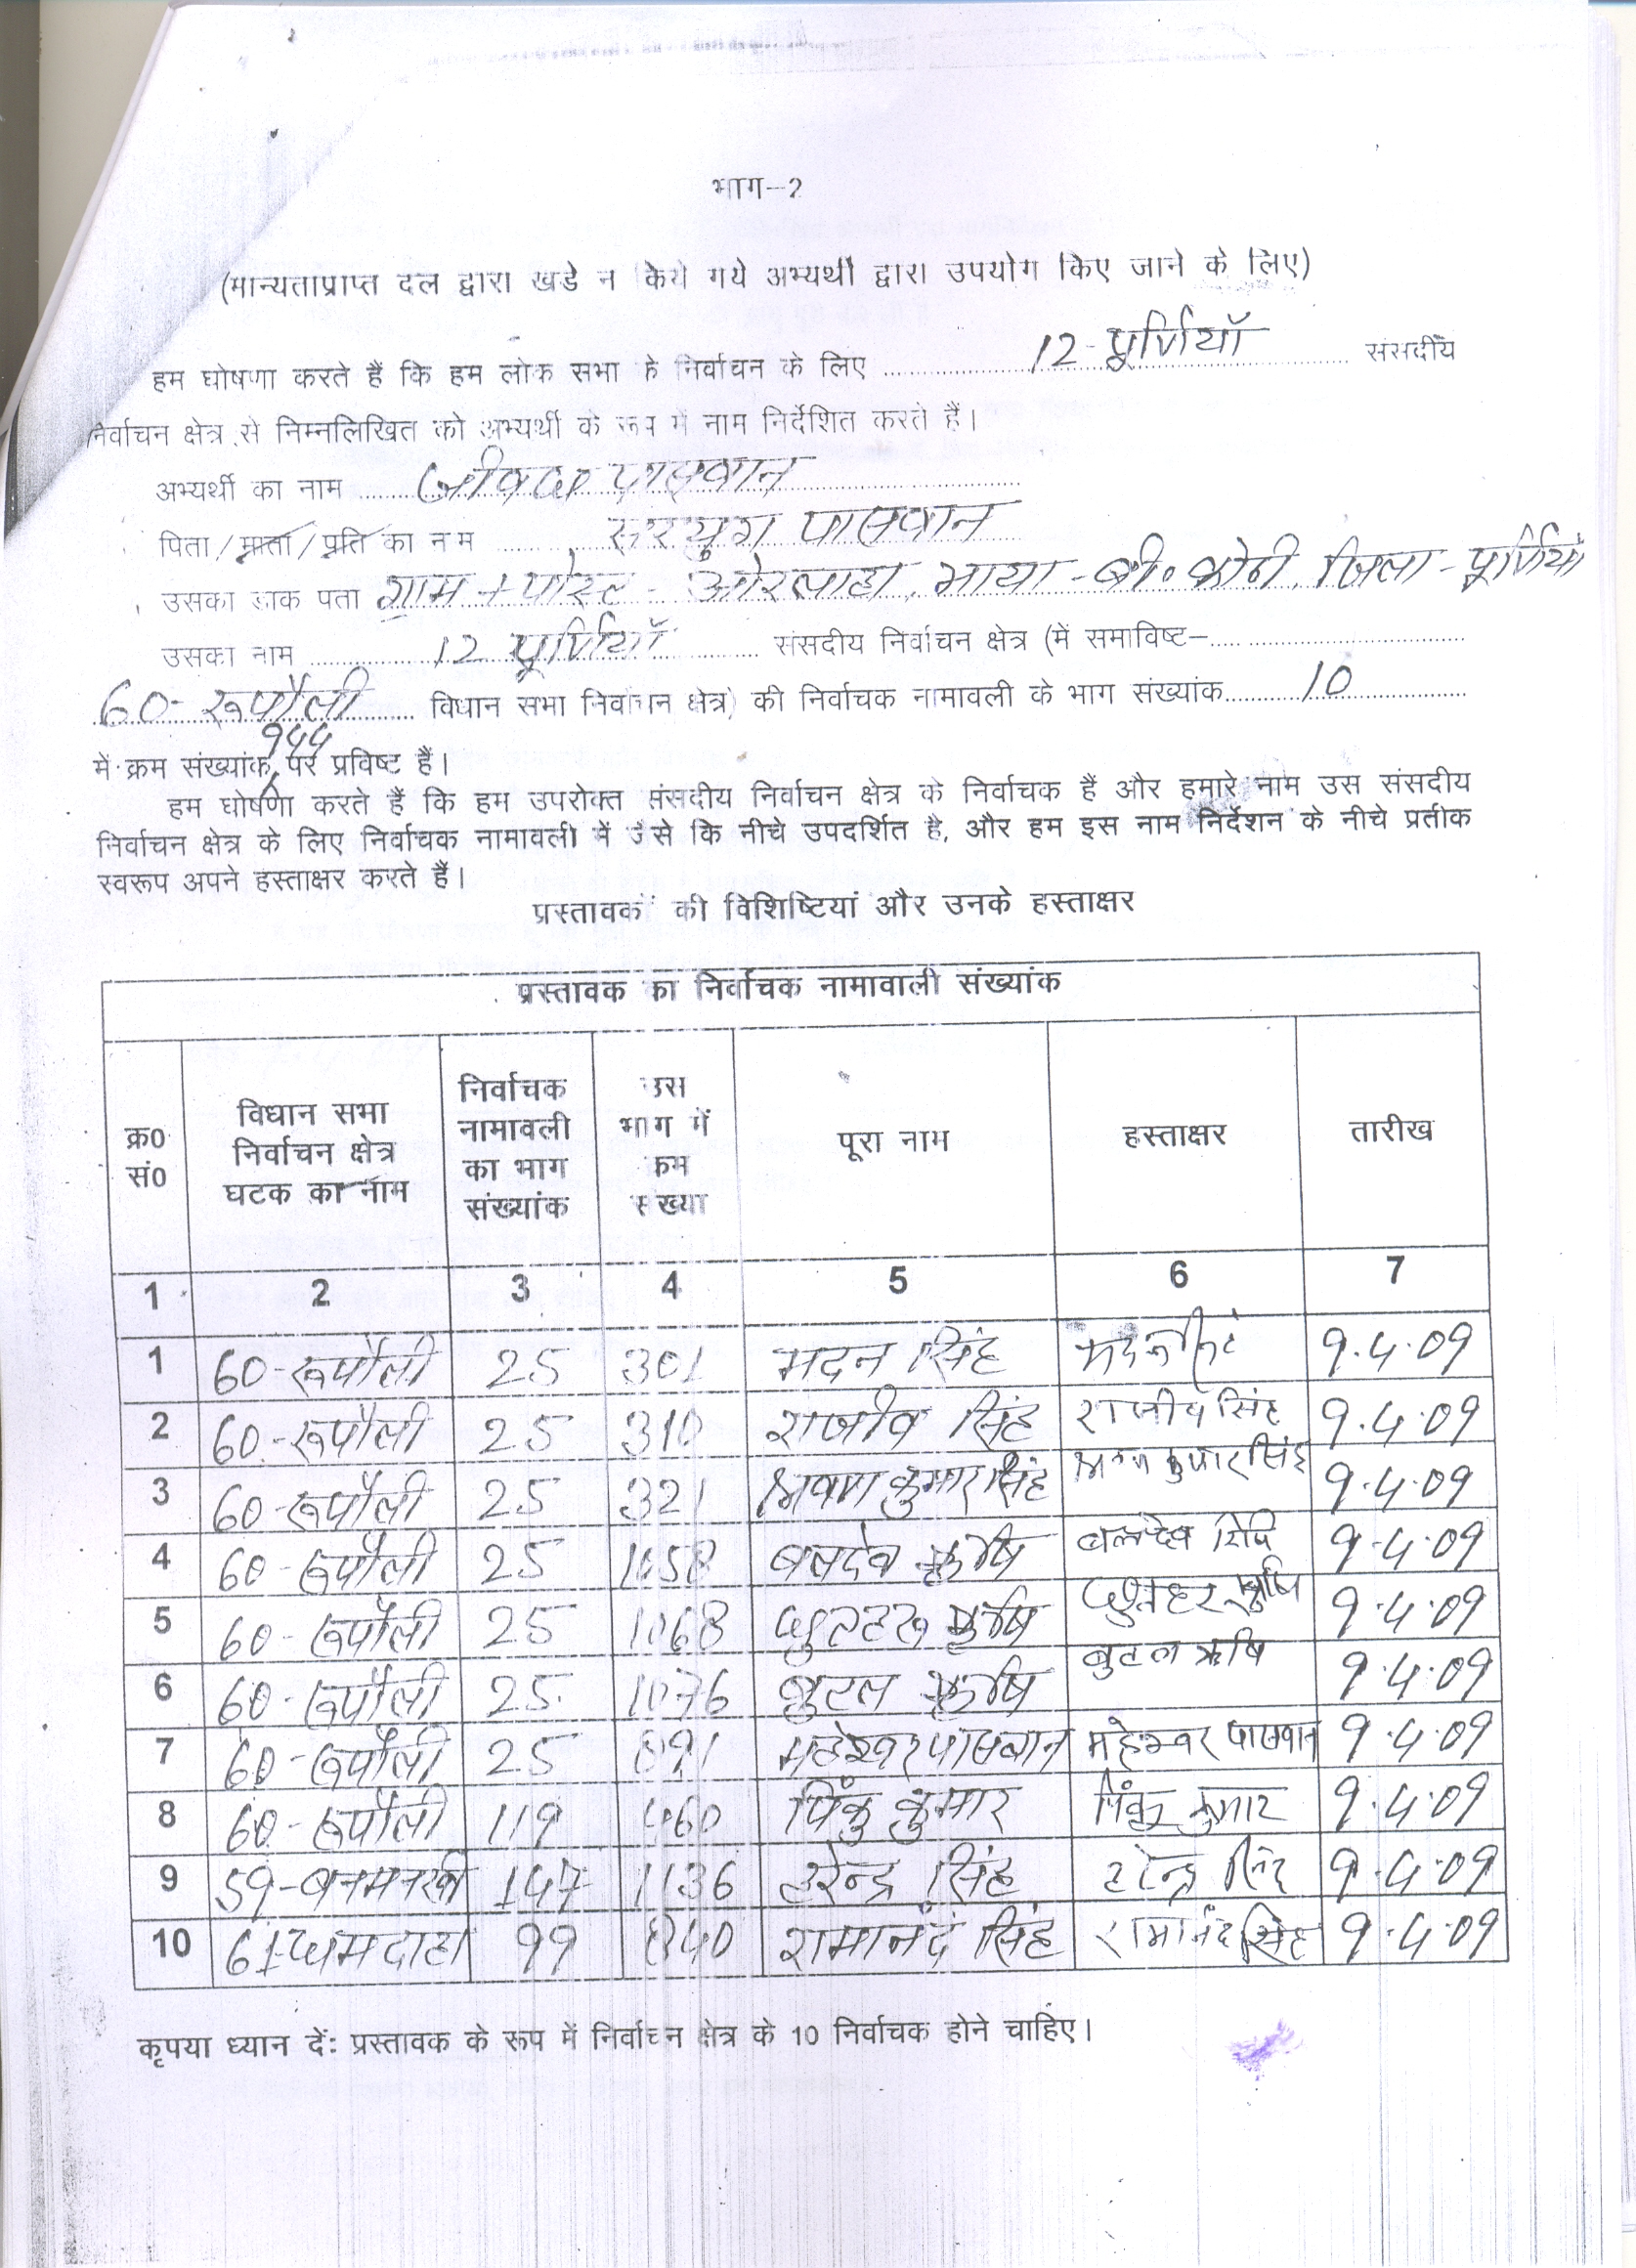 भाग-2
(मान्यताप्राप्त दल द्वारा खडे न किये गये अभ्यर्थी द्वारा उपयोग किए जाने के लिए)
हम घोषणा करते हैं कि हम लोक सभा के निर्वाचन के लिए 12-पूर्णियाँ संसदीय
निर्वाचन क्षेत्र से निम्नलिखित को अभ्यर्थी के रूप में नाम निर्देशित करते हैं।
अभ्यर्थी का नाम पासवान
पिता/माता/प्रति का नाम सरयुग पासवान
उसका डाक पता ग्राम + पोस्ट - ओरलाहा, भाया - बी० कोठी, जिला - पूर्णियाँ
उसका नाम 12 पूर्णियाँ संसदीय निर्वाचन क्षेत्र (में समाविष्ट-
60- रूपौली विधान सभा निर्वाचन क्षेत्र) की निर्वाचक नामावली के भाग संख्यांक 10
944
में क्रम संख्यांक पर प्रविष्ट हैं।
हम घोषणा करते हैं कि हम उपरोक्त संसदीय निर्वाचन क्षेत्र के निर्वाचक हैं और हमारे नाम उस संसदीय
निर्वाचन क्षेत्र के लिए निर्वाचक नामावली में जैसे कि नीचे उपदर्शित है, और हम इस नाम निर्देशन के नीचे प्रतीक
स्वरूप अपने हस्ताक्षर करते हैं।
प्रस्तावकों की विशिष्टियां और उनके हस्ताक्षर
प्रस्तावक का निर्वाचक नामावाली संख्यांक
क्र0 सं0 विधान सभा निर्वाचन क्षेत्र घटक का नाम निर्वाचक नामावली का भाग संख्यांक उस भाग में क्रम संख्या पूरा नाम हस्ताक्षर तारीख
1 2 3 4 5 6 7
1 60-रूपौली 25 301 मदन सिंह 9.4.09
2 60-रूपौली 25 310 राजीव सिंह राजीव सिंह 9.4.09
3 60-रूपौली 25 321 कुमार सिंह कुमार सिंह 9.4.09
4 60-रूपौली 25 1058 बलदेव ऋषि बलदेव रिषि 9.4.09
5 60-रूपौली 25 1068 ऋषि ऋषि 9.4.09
6 60-रूपौली 25 1076 बुटल ऋषि बुटल ऋषि 9.4.09
7 60-रूपौली 25 891 महेश्वर पासवान महेश्वर पासवान 9.4.09
8 60-रूपौली 119 460 पिंकु कुमार पिंकु कुमार 9.4.09
9 59-बनमनखी 147 1136 हरेन्द्र सिंह हरेन्द्र सिंह 9.4.09
10 61-धमदाहा 99 840 रामानंद सिंह रामानंद सिंह 9.4.09
कृपया ध्यान दें: प्रस्तावक के रूप में निर्वाचन क्षेत्र के 10 निर्वाचक होने चाहिए।